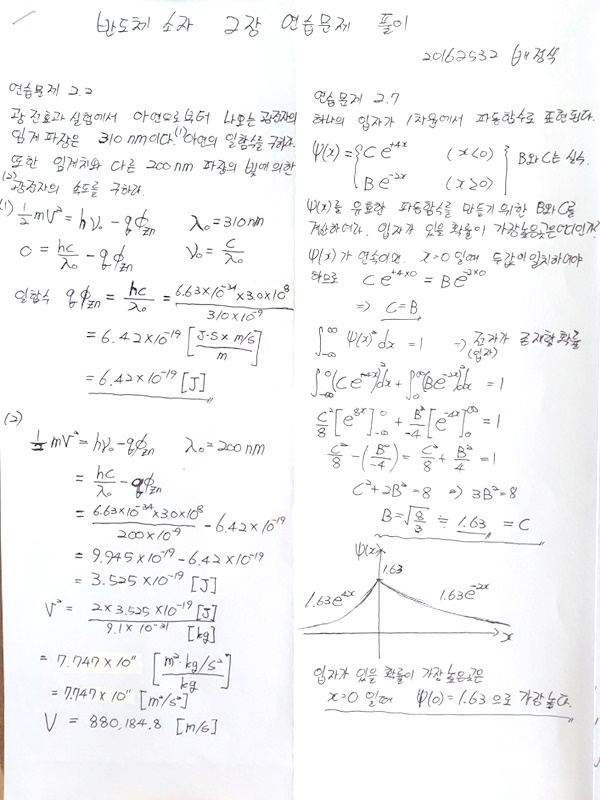 반도체 소자 2장 연습문제 풀이
20162532 배정식
연습문제 2.2
광전효과 실험에서 아연으로부터 나오는 광전자의
임계 파장은 310nm이다. (1)아연의 일함수를 구하라.
또한 임계치와 다른 200nm 파장의 빛에 의한
(2)광전자의 속도를 구하라.
(1) ½mV² = hν₀ - qϕ_Zn λ₀ = 310nm
0 = hc/λ₀ - qϕ_Zn ν₀ = c/λ₀
일함수 qϕ_Zn = hc/λ₀ = 6.63×10⁻³⁴×3.0×10⁸ / 310×10⁻⁹
= 6.42×10⁻¹⁹ [J·S×m/s / m]
= 6.42×10⁻¹⁹ [J]
(2)
½mV² = hν₀ - qϕ_Zn λ₀ = 200nm
= hc/λ₀ - qϕ_Zn
= 6.63×10⁻³⁴×3.0×10⁸ / 200×10⁻⁹ - 6.42×10⁻¹⁹
= 9.945×10⁻¹⁹ - 6.42×10⁻¹⁹
= 3.525×10⁻¹⁹ [J]
V² = 2×3.525×10⁻¹⁹ [J] / 9.1×10⁻³¹ [kg]
= 7.747×10¹¹ [m²·kg/s² / kg]
= 7.747×10¹¹ [m²/s²]
V = 880,184.8 [m/s]
연습문제 2.7
하나의 입자가 1차원에서 파동함수로 표현된다.
Ψ(x) = { C e^{+4x} (x<0)
B e^{-2x} (x≥0) } B와 C는 실수.
Ψ(x)를 유효한 파동함수를 만들기 위한 B와 C를
계산하여라. 입자가 있을 확률이 가장높은곳은 어디인가?
Ψ(x)가 연속이면, x=0 일때 두값이 일치하여야
하므로 C e^{+4×0} = B e^{-2×0}
⇒ C=B
∫_{-∞}^{∞} Ψ(x)² dx = 1 ⇒ 전자가 존재할 확률
(입자)
∫_{-∞}^{0} (C e^{+4x})² dx + ∫_{0}^{∞} (B e^{-2x})² dx = 1
C²/8 [e^{8x}]_{-∞}^{0} + B²/-4 [e^{-4x}]_{0}^{∞} = 1
C²/8 - (B²/-4) = C²/8 + B²/4 = 1
C² + 2B² = 8 ⇒ 3B² = 8
B = √(8/3) ≒ 1.63 = C
Ψ(x)
1.63
1.63e^{4x} 1.63e^{-2x}
x
입자가 있을 확률이 가장 높은곳은
x=0 일때 Ψ(0)=1.63 으로 가장 높다.